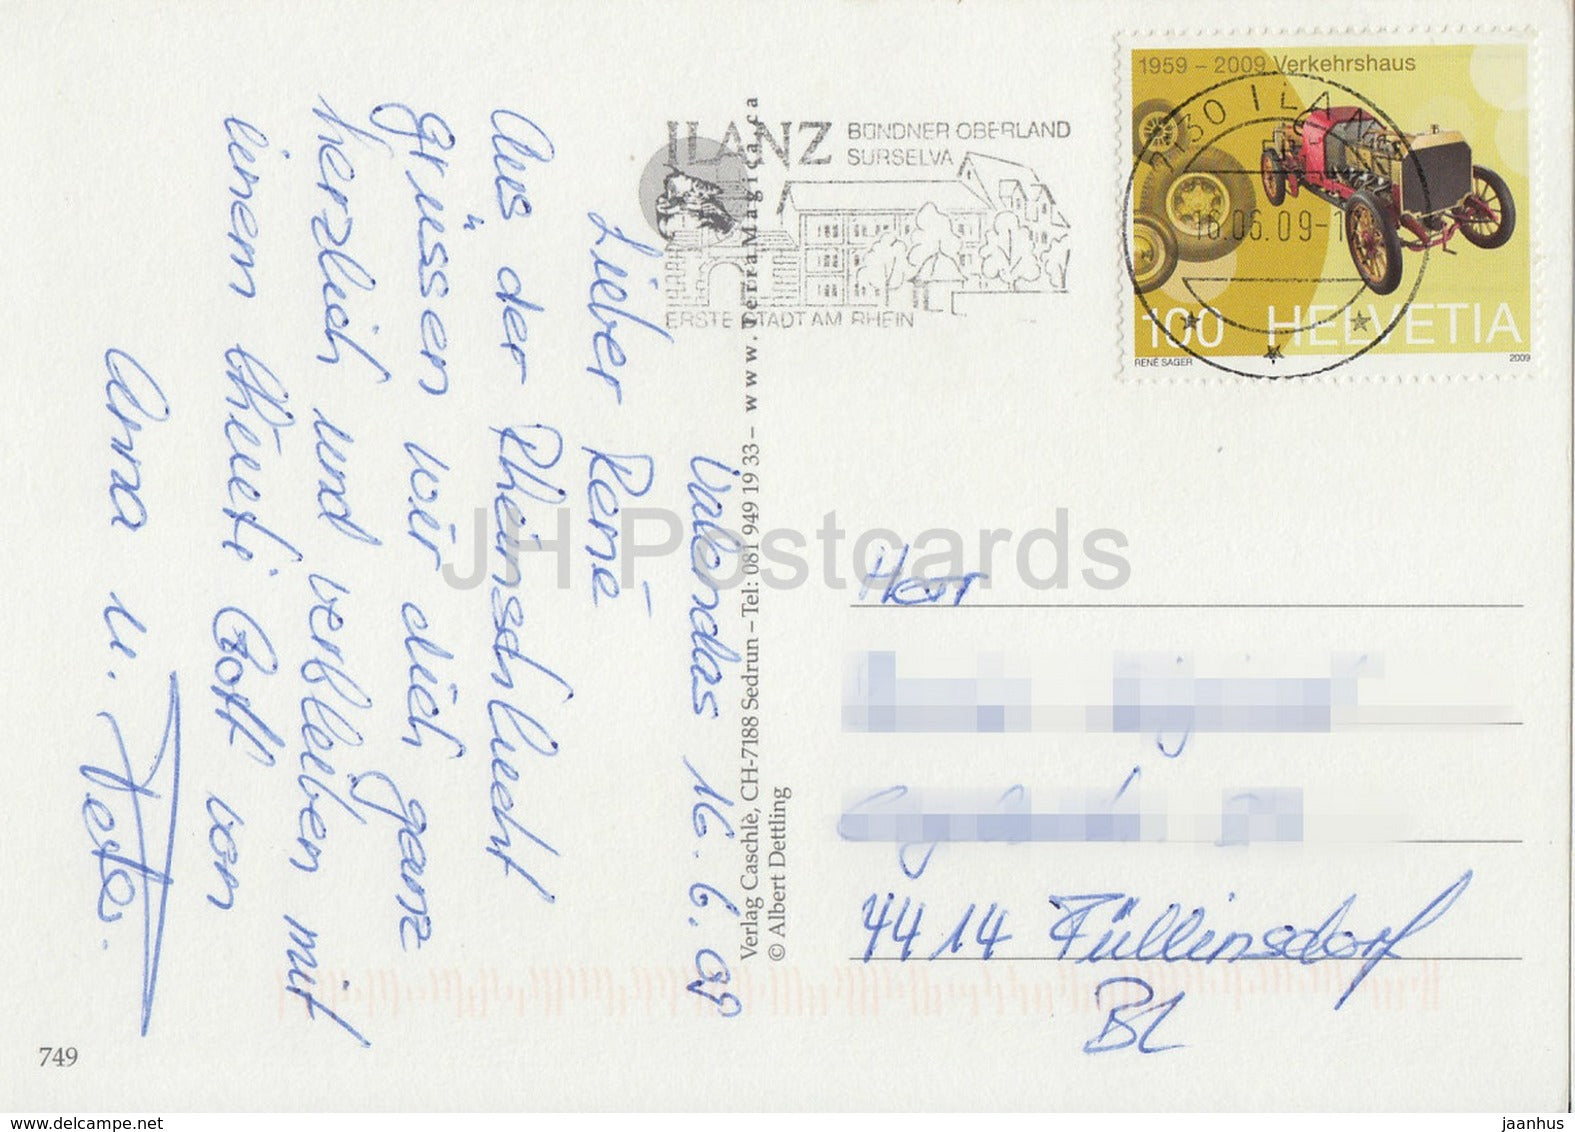 Valendas 16. 6. 09
Lieber René
Aus der Rheinschlucht
grüssen wir dich ganz
herzlich und verbleiben mit
einem Pfüeti Gott von
Anna u. Peter.
ILANZ BÜNDNER OBERLAND
SURSELVA
ERSTE STADT AM RHEIN
1959 – 2009 Verkehrshaus
7130 ILANZ
16.06.09-1
100 HELVETIA
RENÉ SAGER 2009
Verlag Caschlè, CH-7188 Sedrun – Tel: 081 949 19 33 – www.TerraMagica.ca
© Albert Dettling
Herr
4414 Füllinsdorf
BL
749
JH Postcards
www.delcampe.net
jaanhus